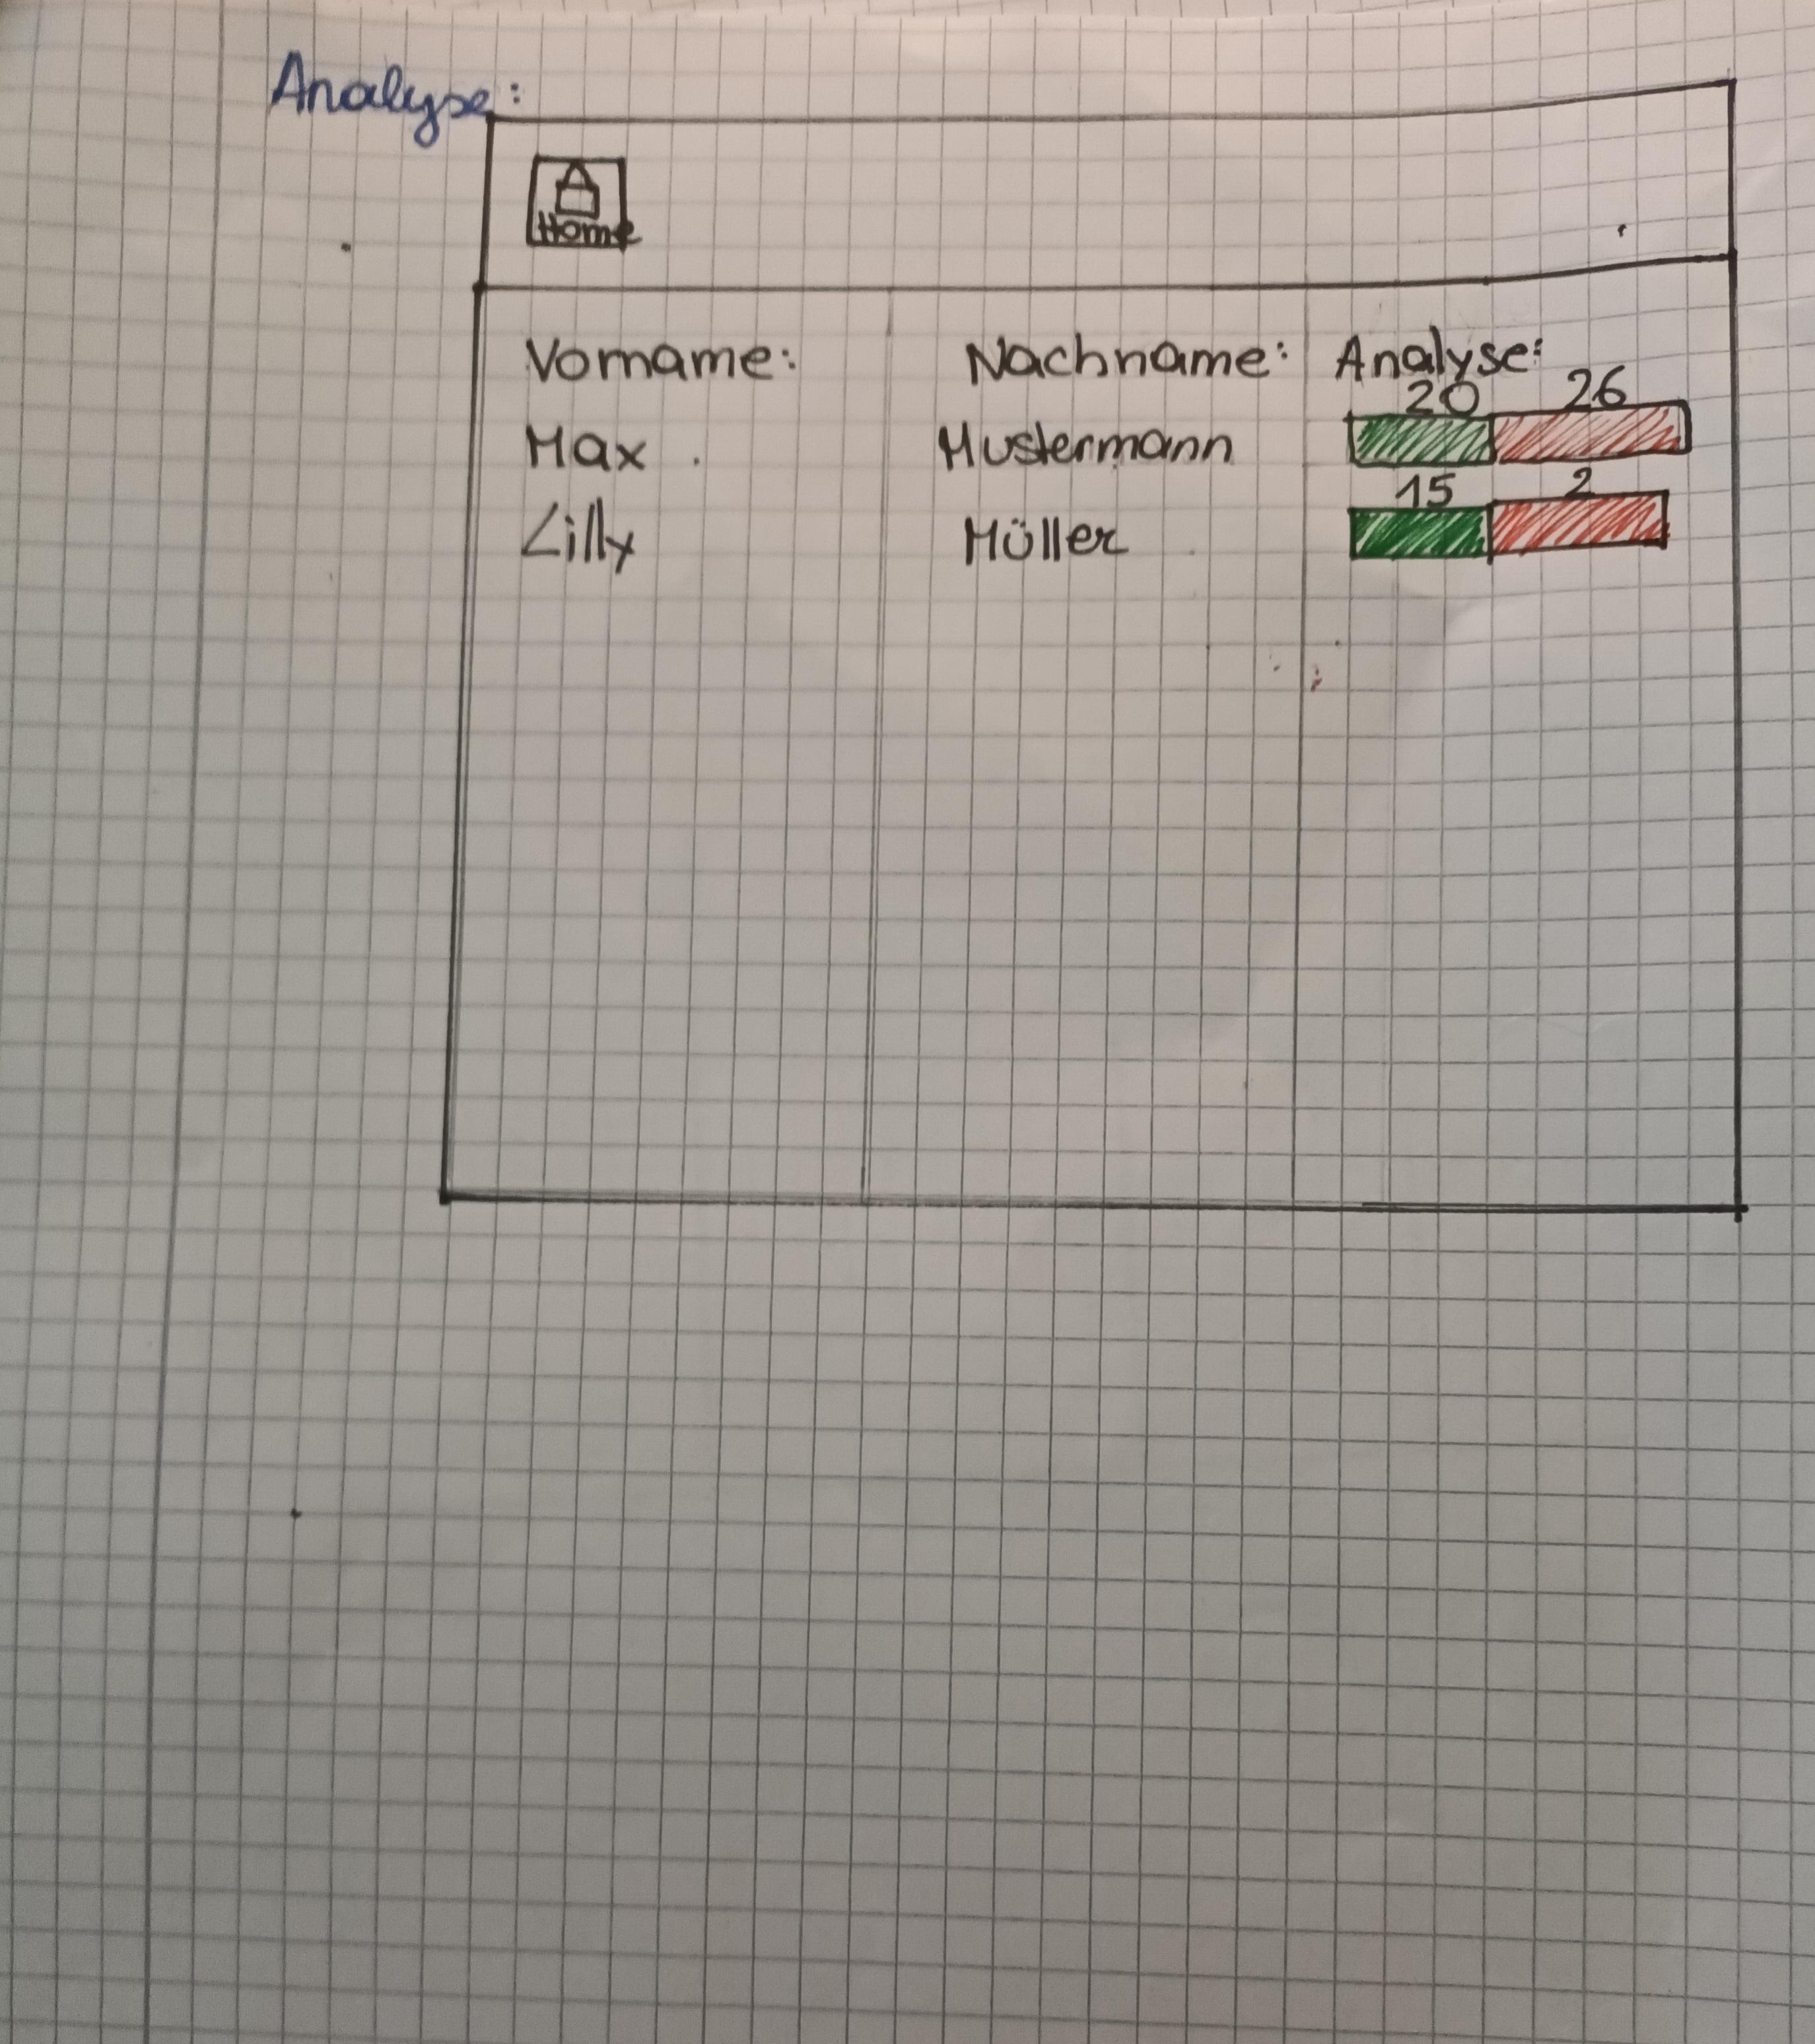 Analyse:
Home
Vorname: Nachname: Analyse:
20 26
Max Mustermann
15 2
Lilly Müller